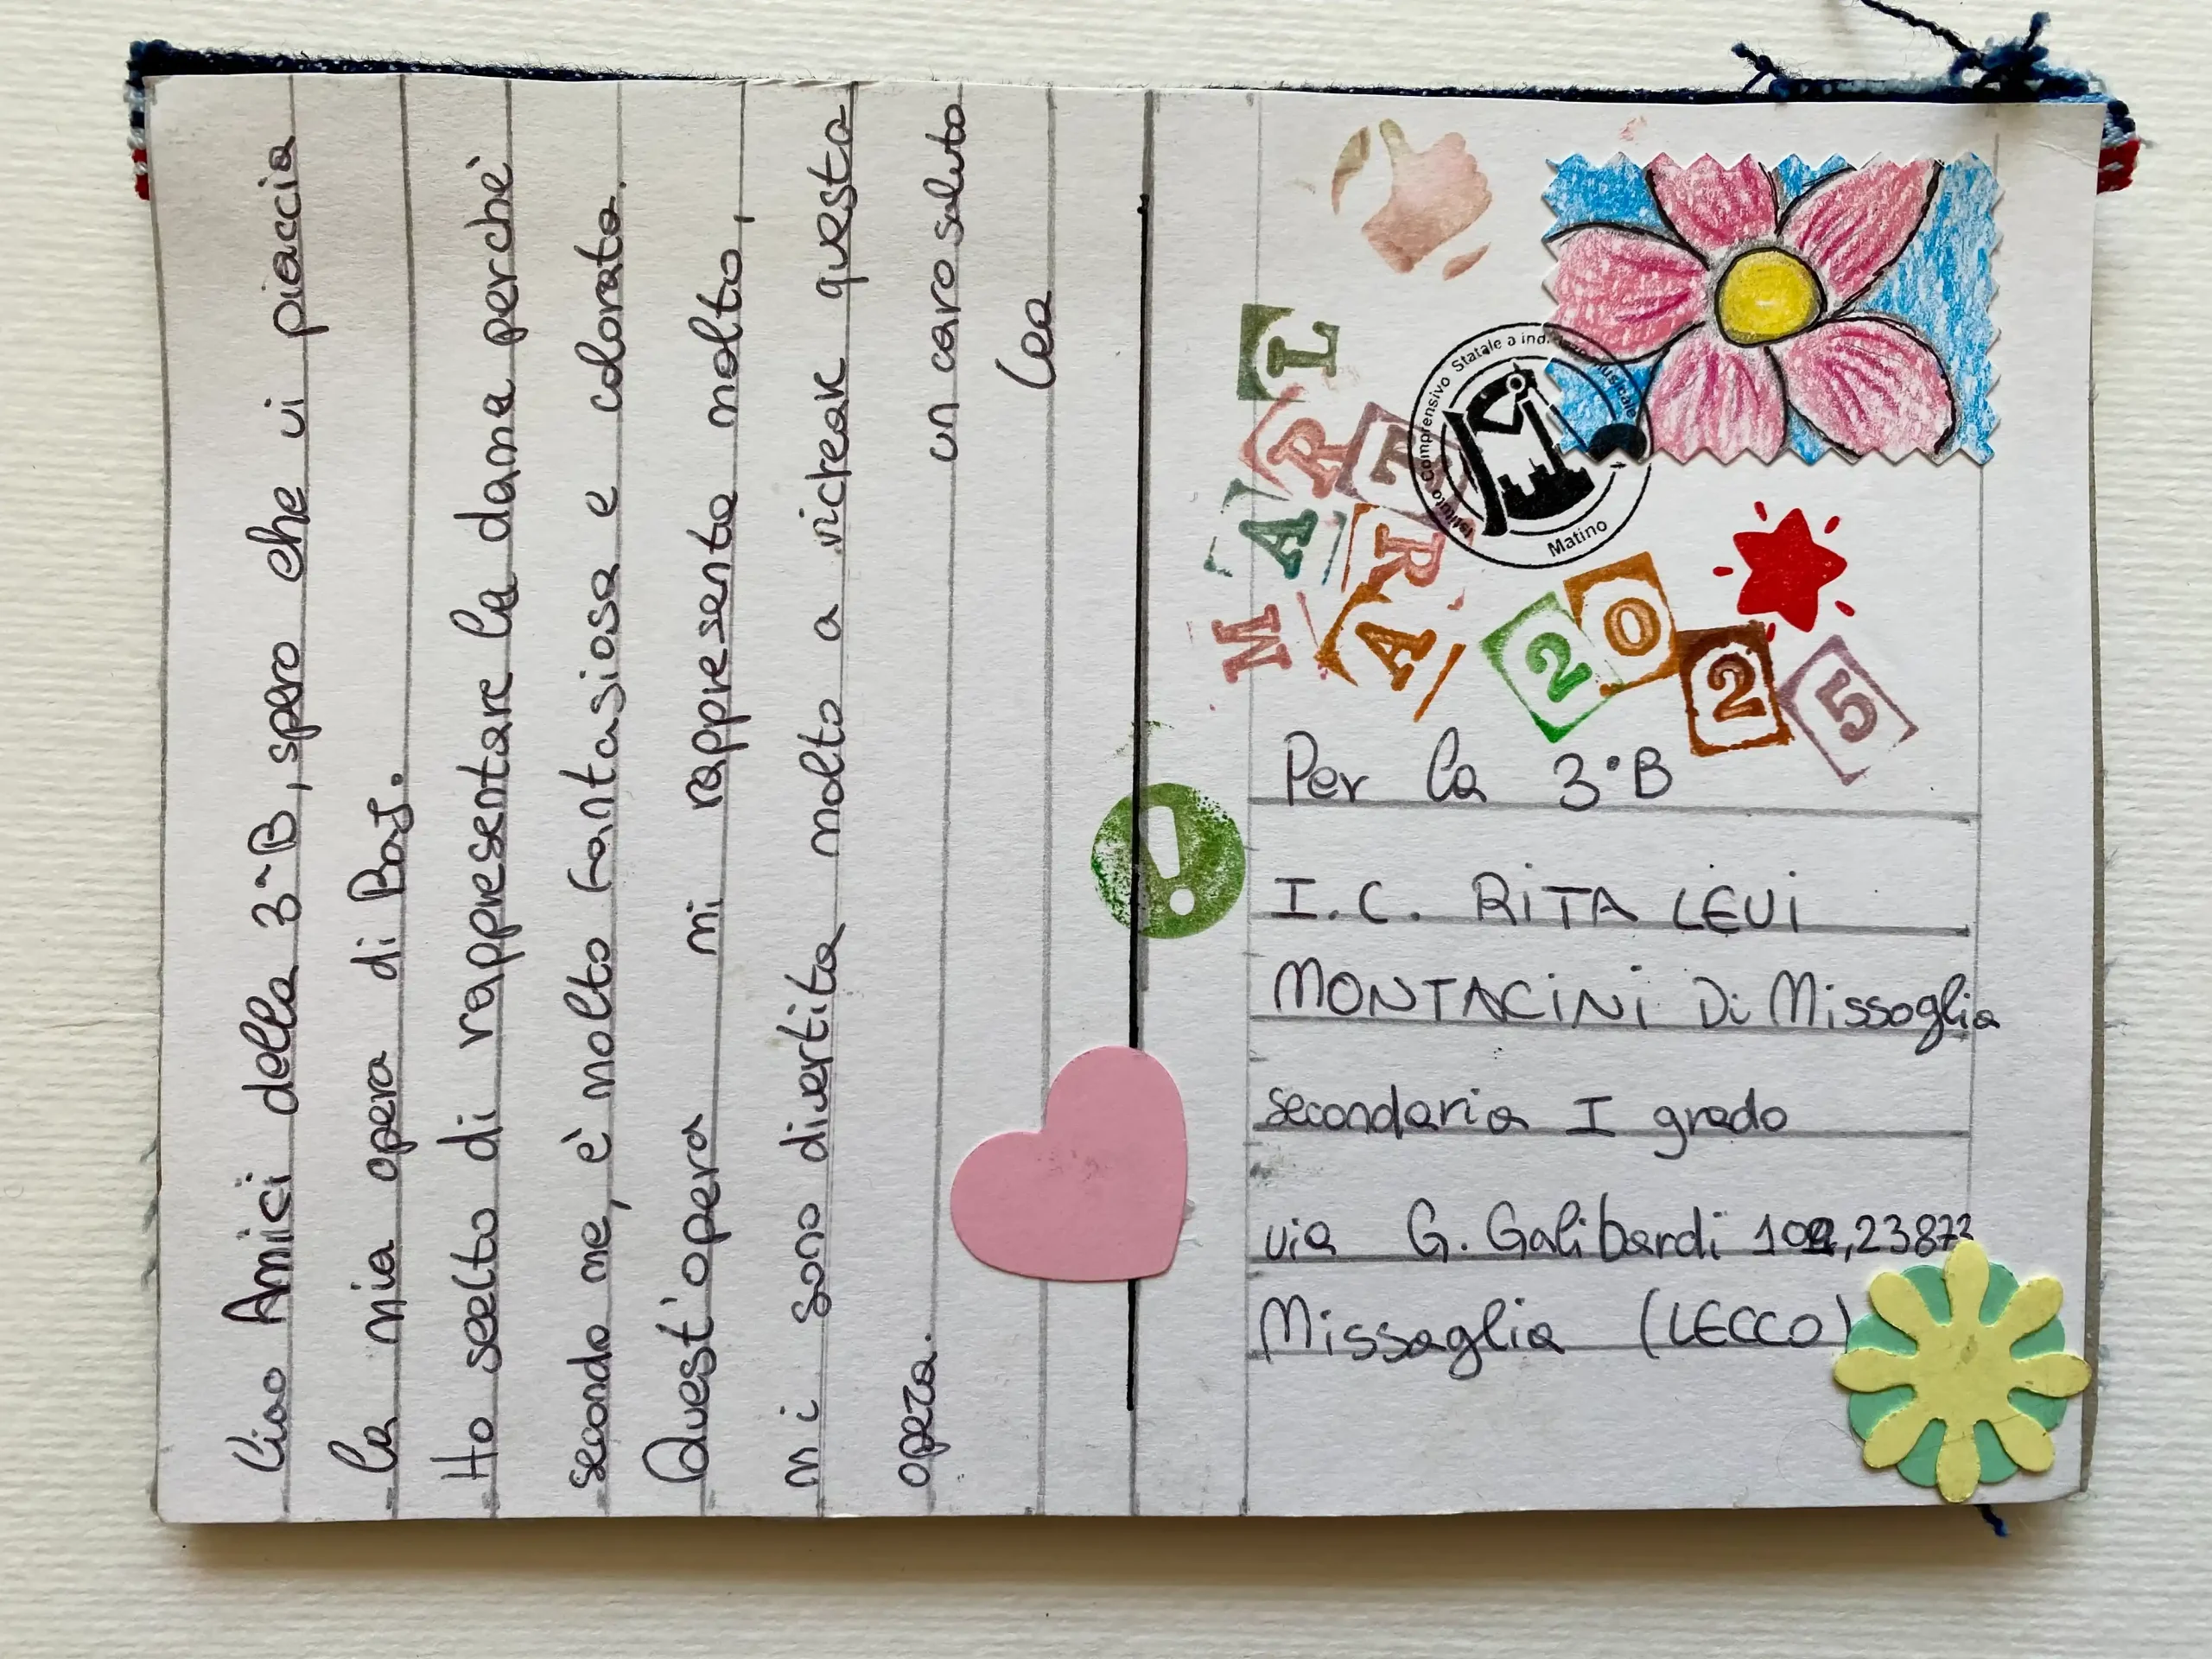 Ciao Amici della 3^B, spero che vi piaccia
la mia opera di Baj.
Ho scelto di rappresentare la dama perchè
secondo me, è molto fantasiosa e colorata.
Quest'opera mi rappresenta molto,
mi sono divertita molto a ricreare questa
opera.
un caro saluto
Lea
MAIL
ART
ART
2025
Istituto Comprensivo Statale a ind.
Matino
Per la 3°B
I.C. RiTA LEVi
MONTACiNi Di Missaglia
secondaria I grado
via G. Galibardi 23873
Missaglia (LECCO)